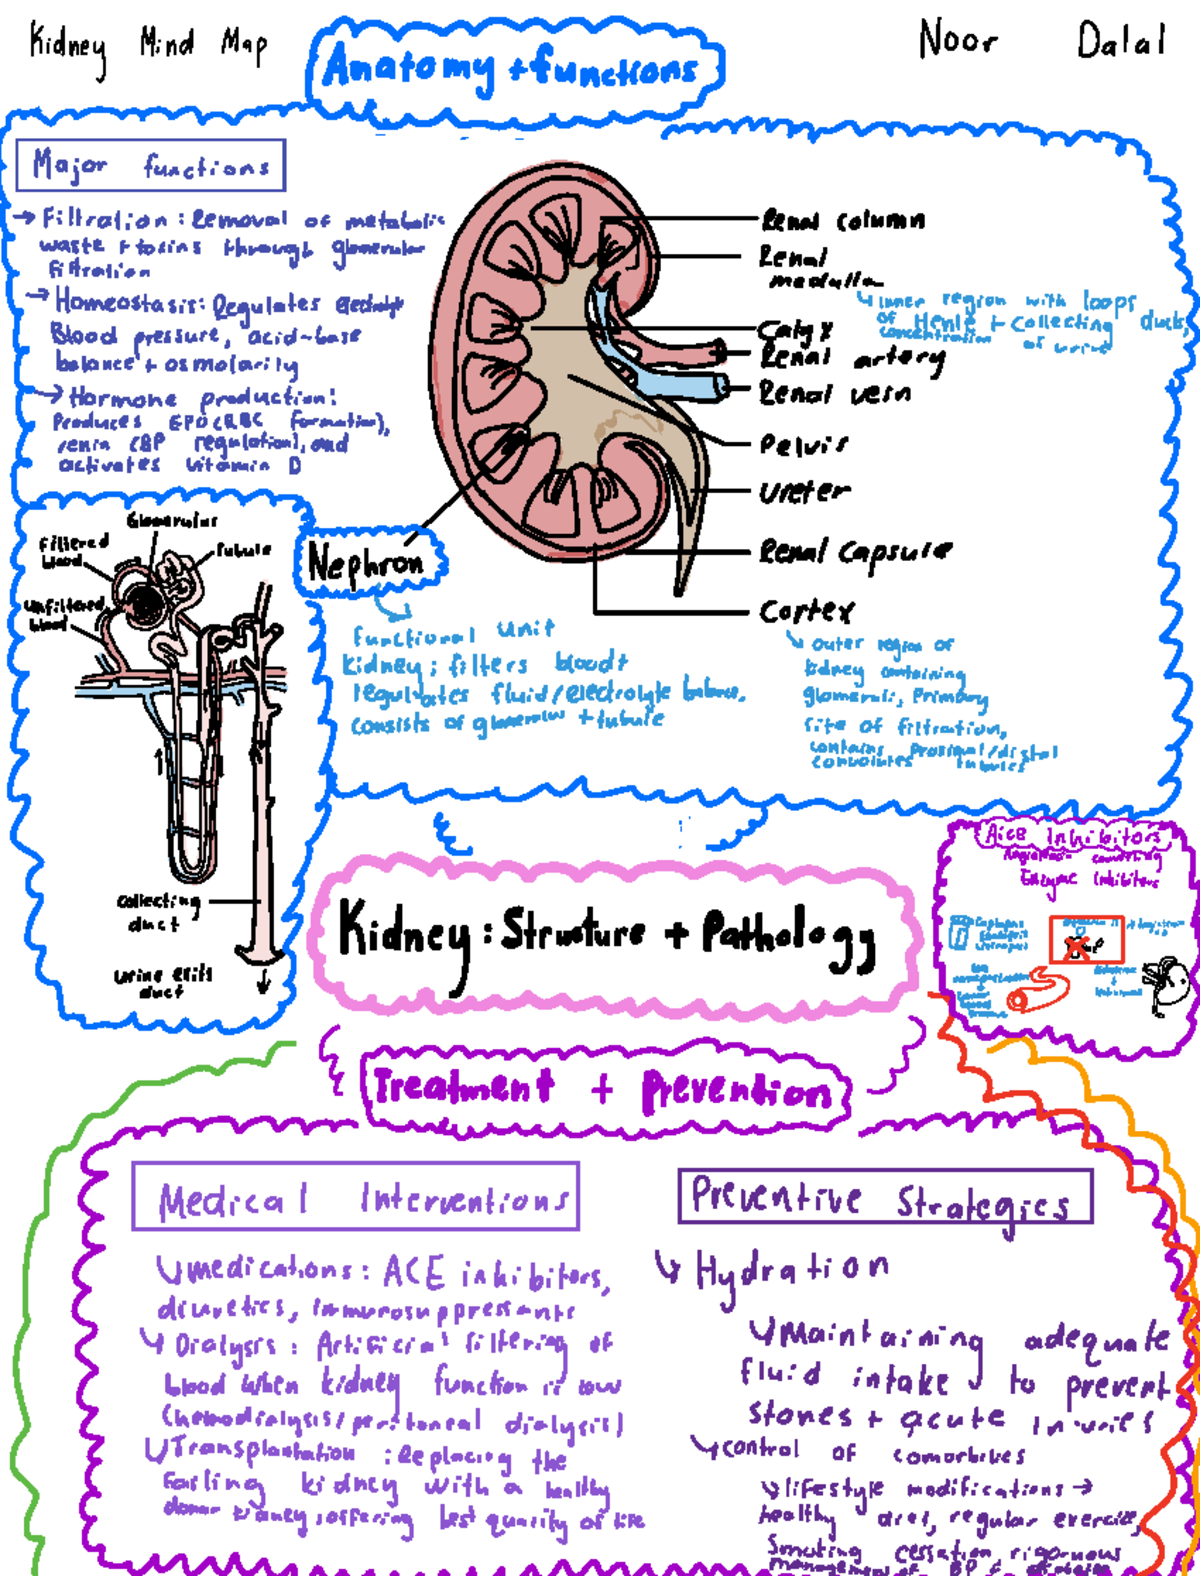 Kidney Mind Map
Noor Dalal
Anatomy + functions
Major functions
→ Filtration: Removal of metabolic
waste + toxins through glomerular
filtration
→ Homeostasis: Regulates
Blood pressure, acid-base
balance + osmolarity
→ Hormone production:
Produces EPO (RBC formation),
renin (BP regulation), and
activates vitamin D
Renal column
Renal
medulla
↳ inner region with loops
of Henle + collecting ducts,
concentration of urine
Calyx
Renal artery
Renal vein
Pelvis
Ureter
Renal capsule
Cortex
↳ outer region of
kidney containing
glomeruli, Primary
site of filtration,
contains proximal/distal
convolutes tubules
Nephron
Functional Unit
kidney; filters blood +
regulates fluid/electrolyte balance,
consists of glomerulus + tubule
Glomerulus
Filtered
blood
Tubule
Unfiltered
blood
Collecting
duct
Urine exits
duct
Kidney: Structure + Pathology
Inhibitors
Enzyme Inhibitors
Treatment + Prevention
Medical Interventions
↳ medications: ACE inhibitors,
diuretics, immunosuppressants
↳ Dialysis: Artificial filtering of
blood when kidney function is low
(hemodialysis/peritoneal dialysis)
↳ Transplantation: Replacing the
failing kidney with a healthy
donor kidney, offering best quality of life
Preventive Strategies
↳ Hydration
↳ Maintaining adequate
fluid intake to prevent
stones + acute injuries
↳ control of
↳ lifestyle modifications →
healthy diet, regular exercise,
Smoking cessation, rigorous
management of BP